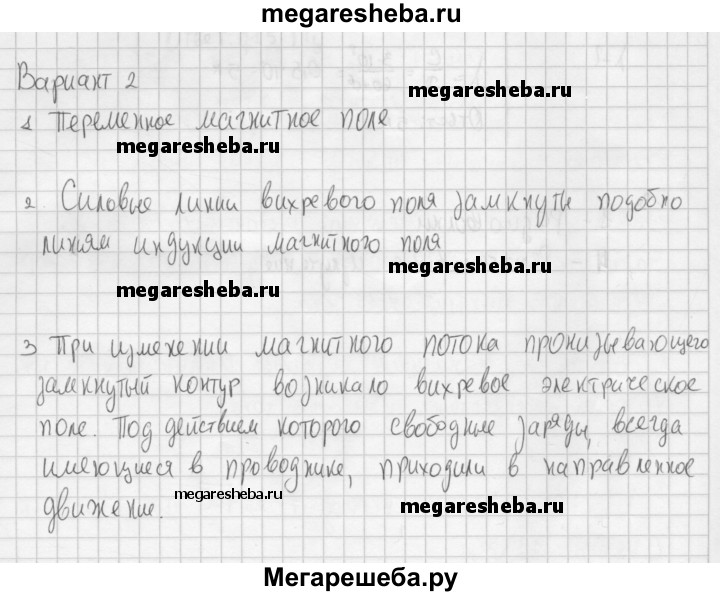 megaresheba.ru
Вариант 2
megaresheba.ru
1 Переменное магнитное поле
megaresheba.ru
2. Силовые линии вихревого поля замкнуты подобно
линиям индукции магнитного поля
megaresheba.ru
megaresheba.ru
3 При измежении магнитного потока пронизывающего
замкнутый контур возникало вихревое электрическое
поле. Под действием которого свободные заряды, всегда
имеющиеся в проводнике, приходили в направленное
megaresheba.ru
движение.
megaresheba.ru
Мегарешеба.ру